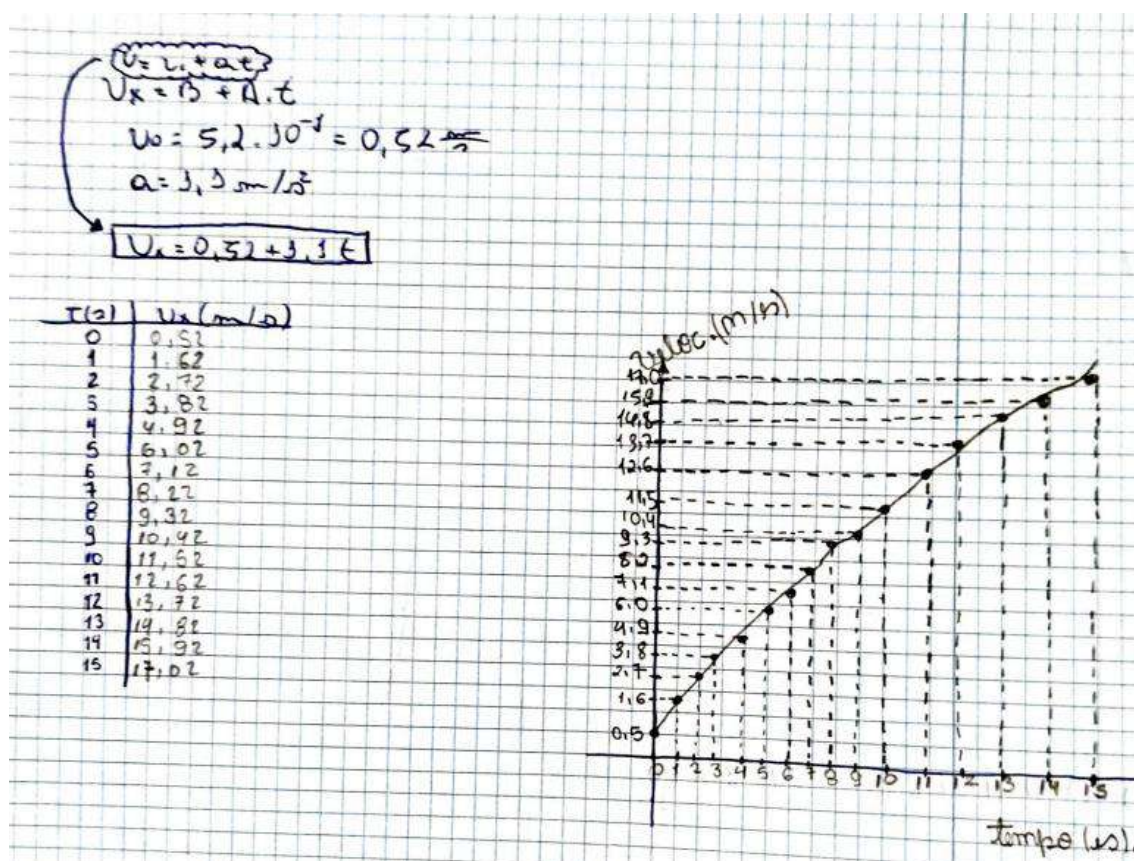 V = V₀ + at
Vx = B + A.t
V₀ = 5,2 . 10⁻¹ = 0,52 m/s
a = 1,1 m/s²
Vx = 0,52 + 1,1 t
T(s) Vx (m/s)
0 0,52
1 1.62
2 2,72
3 3,82
4 4,92
5 6,02
6 7,12
7 8,22
8 9,32
9 10,42
10 11,52
11 12,62
12 13,72
13 14,82
14 15,92
15 17,02
veloc. (m/s)
17,0
15,9
14,8
13,7
12,6
11,5
10,4
9,3
8,2
7,1
6,0
4,9
3,8
2,7
1,6
0,5
0 1 2 3 4 5 6 7 8 9 10 11 12 13 14 15
tempo (s).